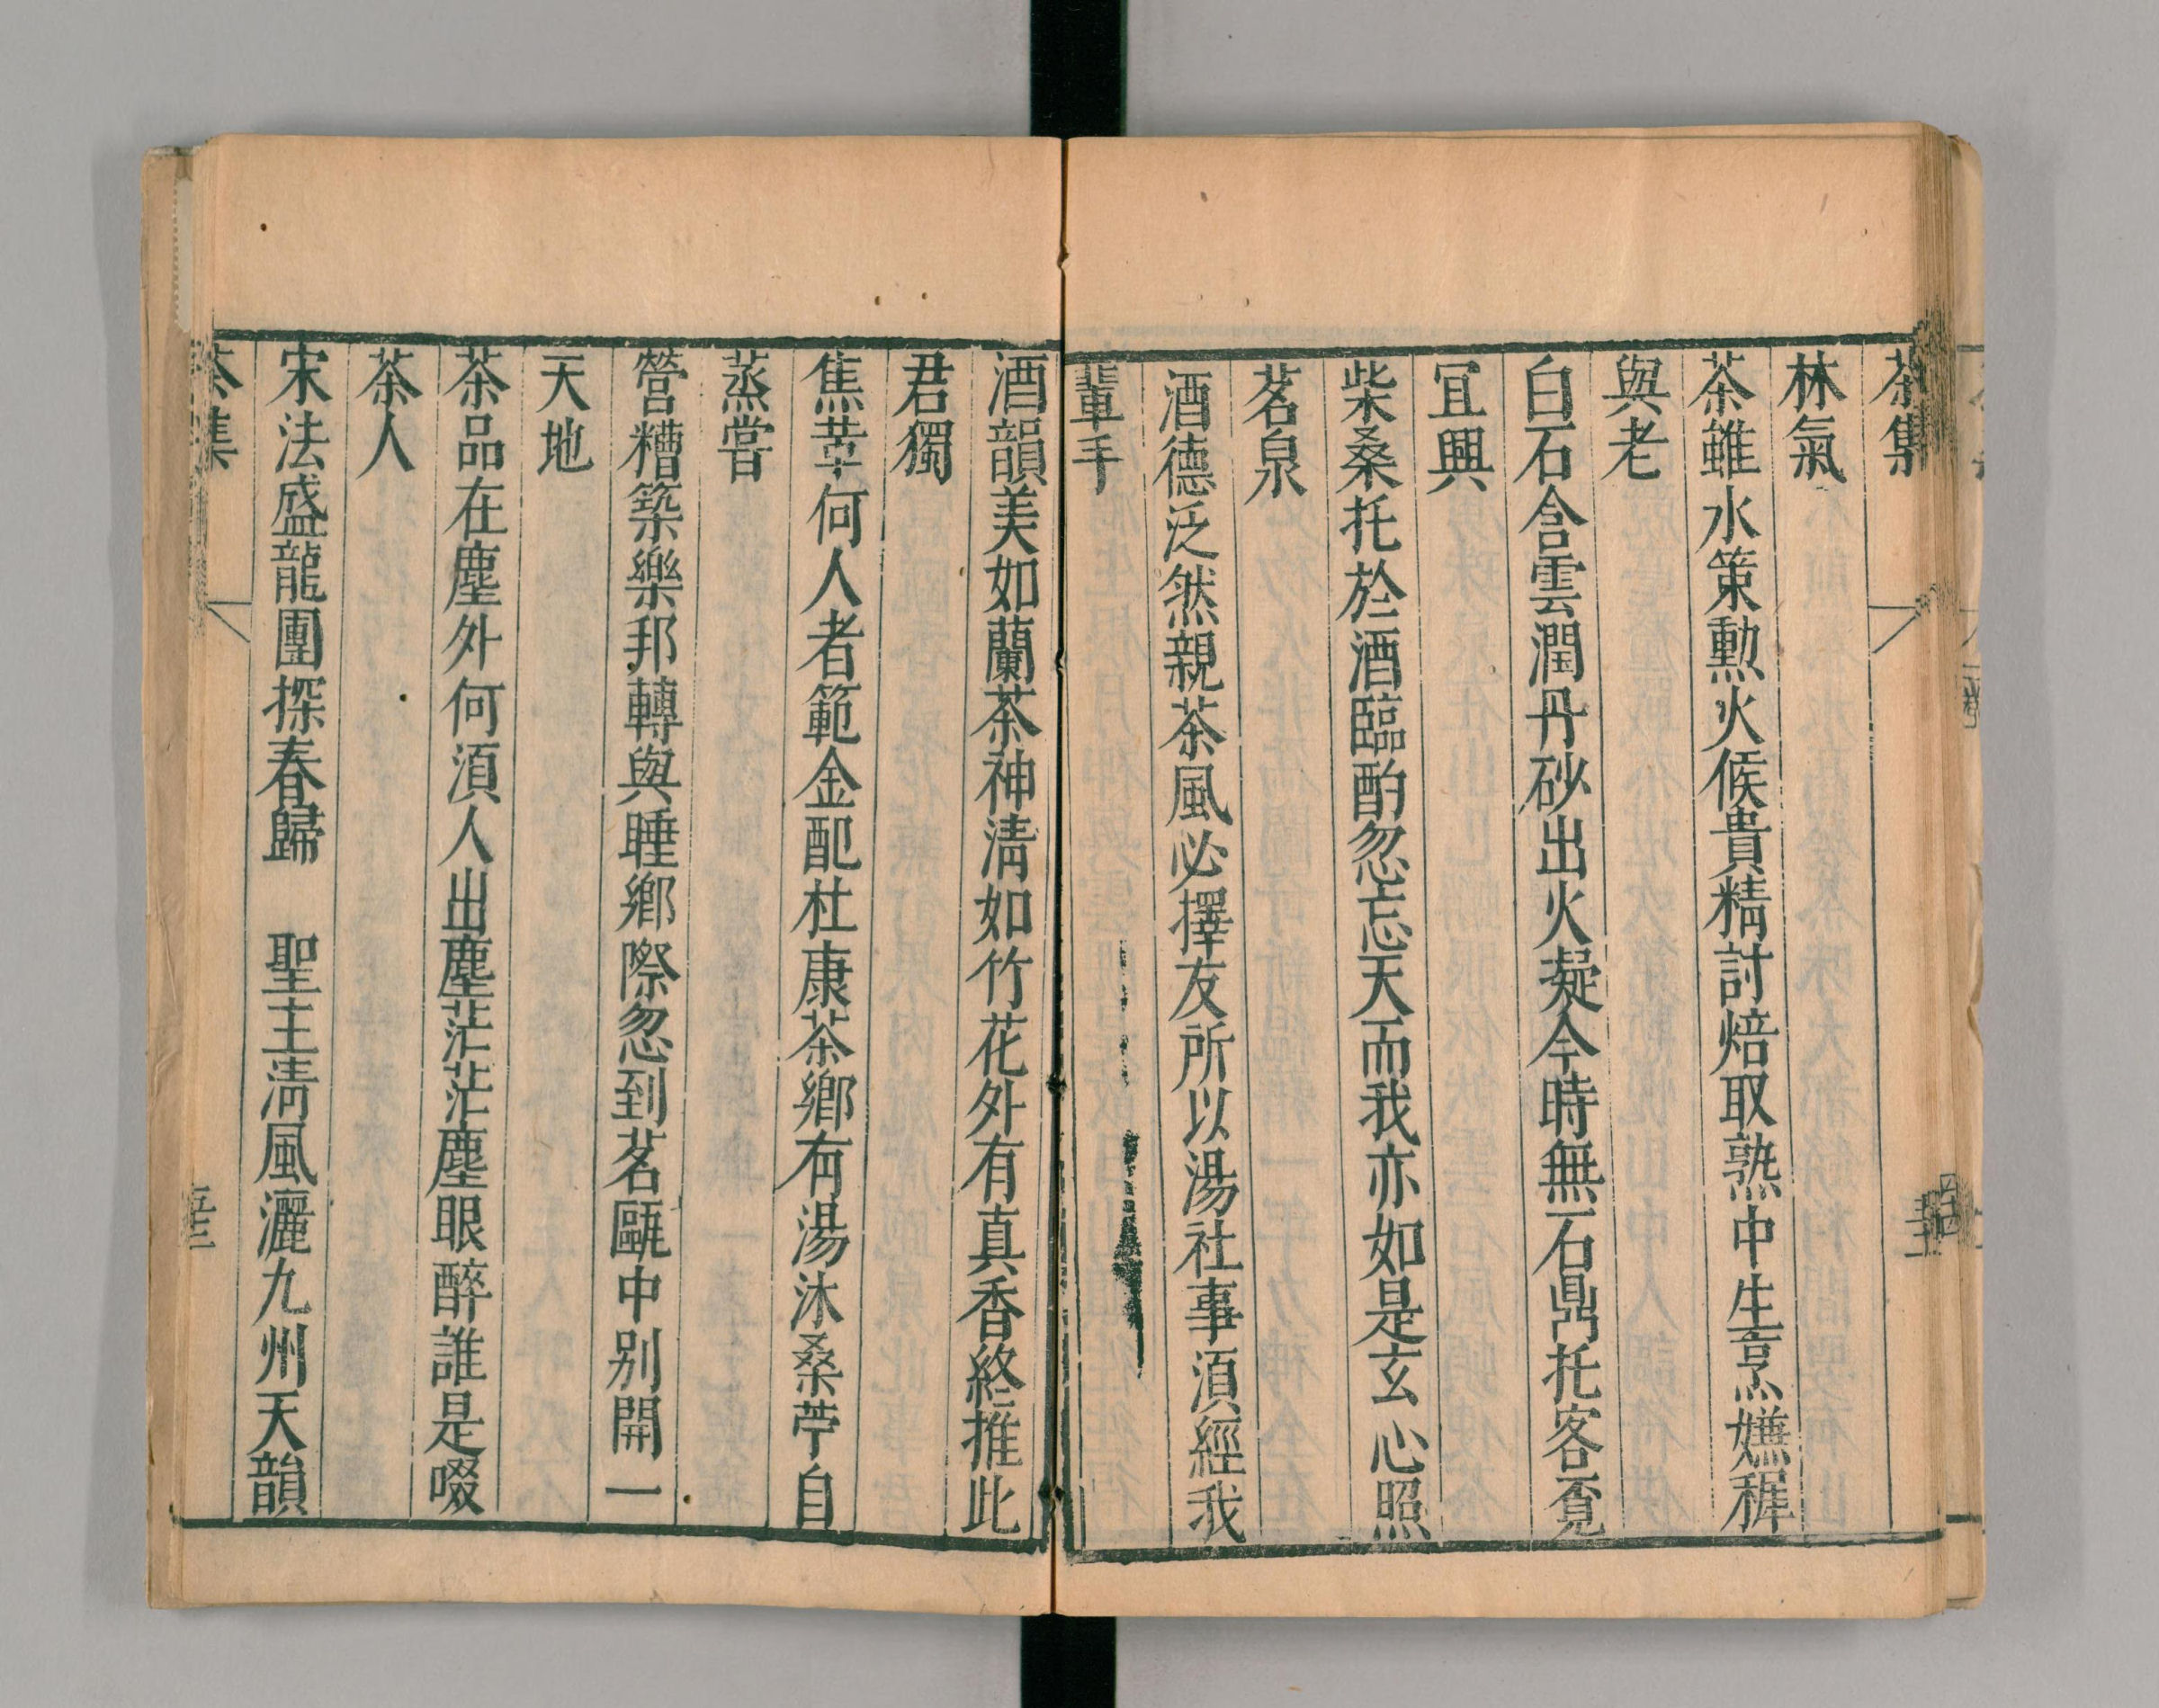 茶集
林氣
茶雖水策勳火候貴精討焙取熟中生烹嫌稺
與老
白石含雲潤丹砂出火凝今時無石鼎托客覔
宜興
柴桑托於酒臨酌忽忘天而我亦如是玄心照
茗泉
酒德泛然親茶風必擇友所以湯社事湏經我
輩手
酒韻美如蘭茶神清如竹花外有真香終推此
君獨
焦革何人者範金配杜康茶鄉有湯沐桑苧自
蒸嘗
營糟築樂邦轉與睡鄉際忽到茗甌中别開一
天地
茶品在塵外何湏人出塵茫茫塵眼醉誰是啜
茶人
宋法盛龍團探春歸　聖主清風灑九州天韻
茶集